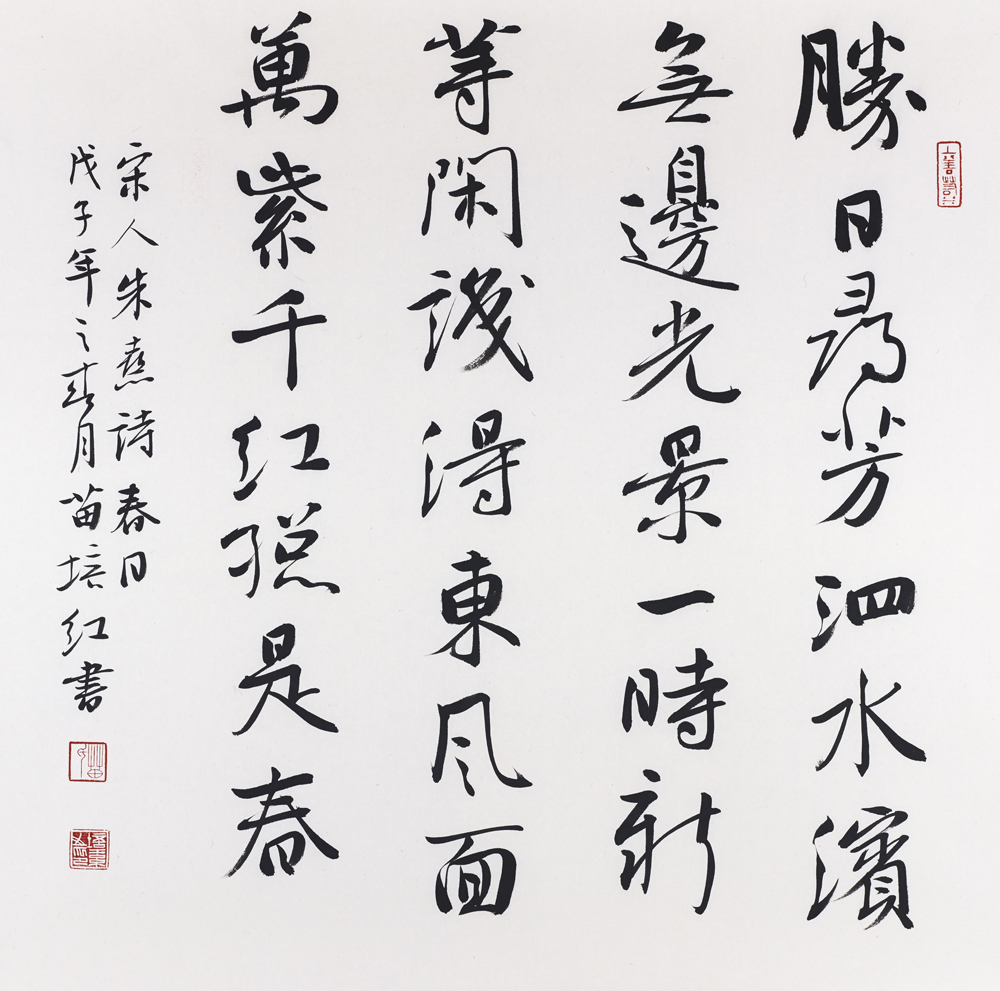 勝日尋芳泗水濱
無邊光景一時新
等閑識得東風面
萬紫千紅總是春
宋人朱熹詩春日
戊子年之春月苗培紅書